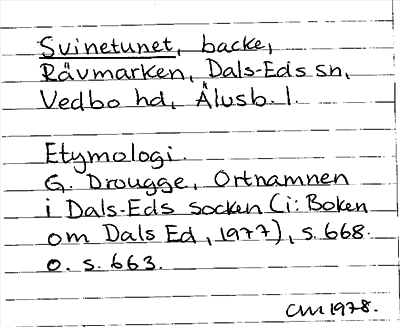 Svinetunet, backe,
Rävmarken, Dals-Eds sn,
Vedbo hd, Älvsb. l.
Etymologi.
G. Drougge, Ortnamnen
i Dals-Eds socken (i: Boken
om Dals Ed, 1977), s. 668.
o. s. 663.
CM 1978.